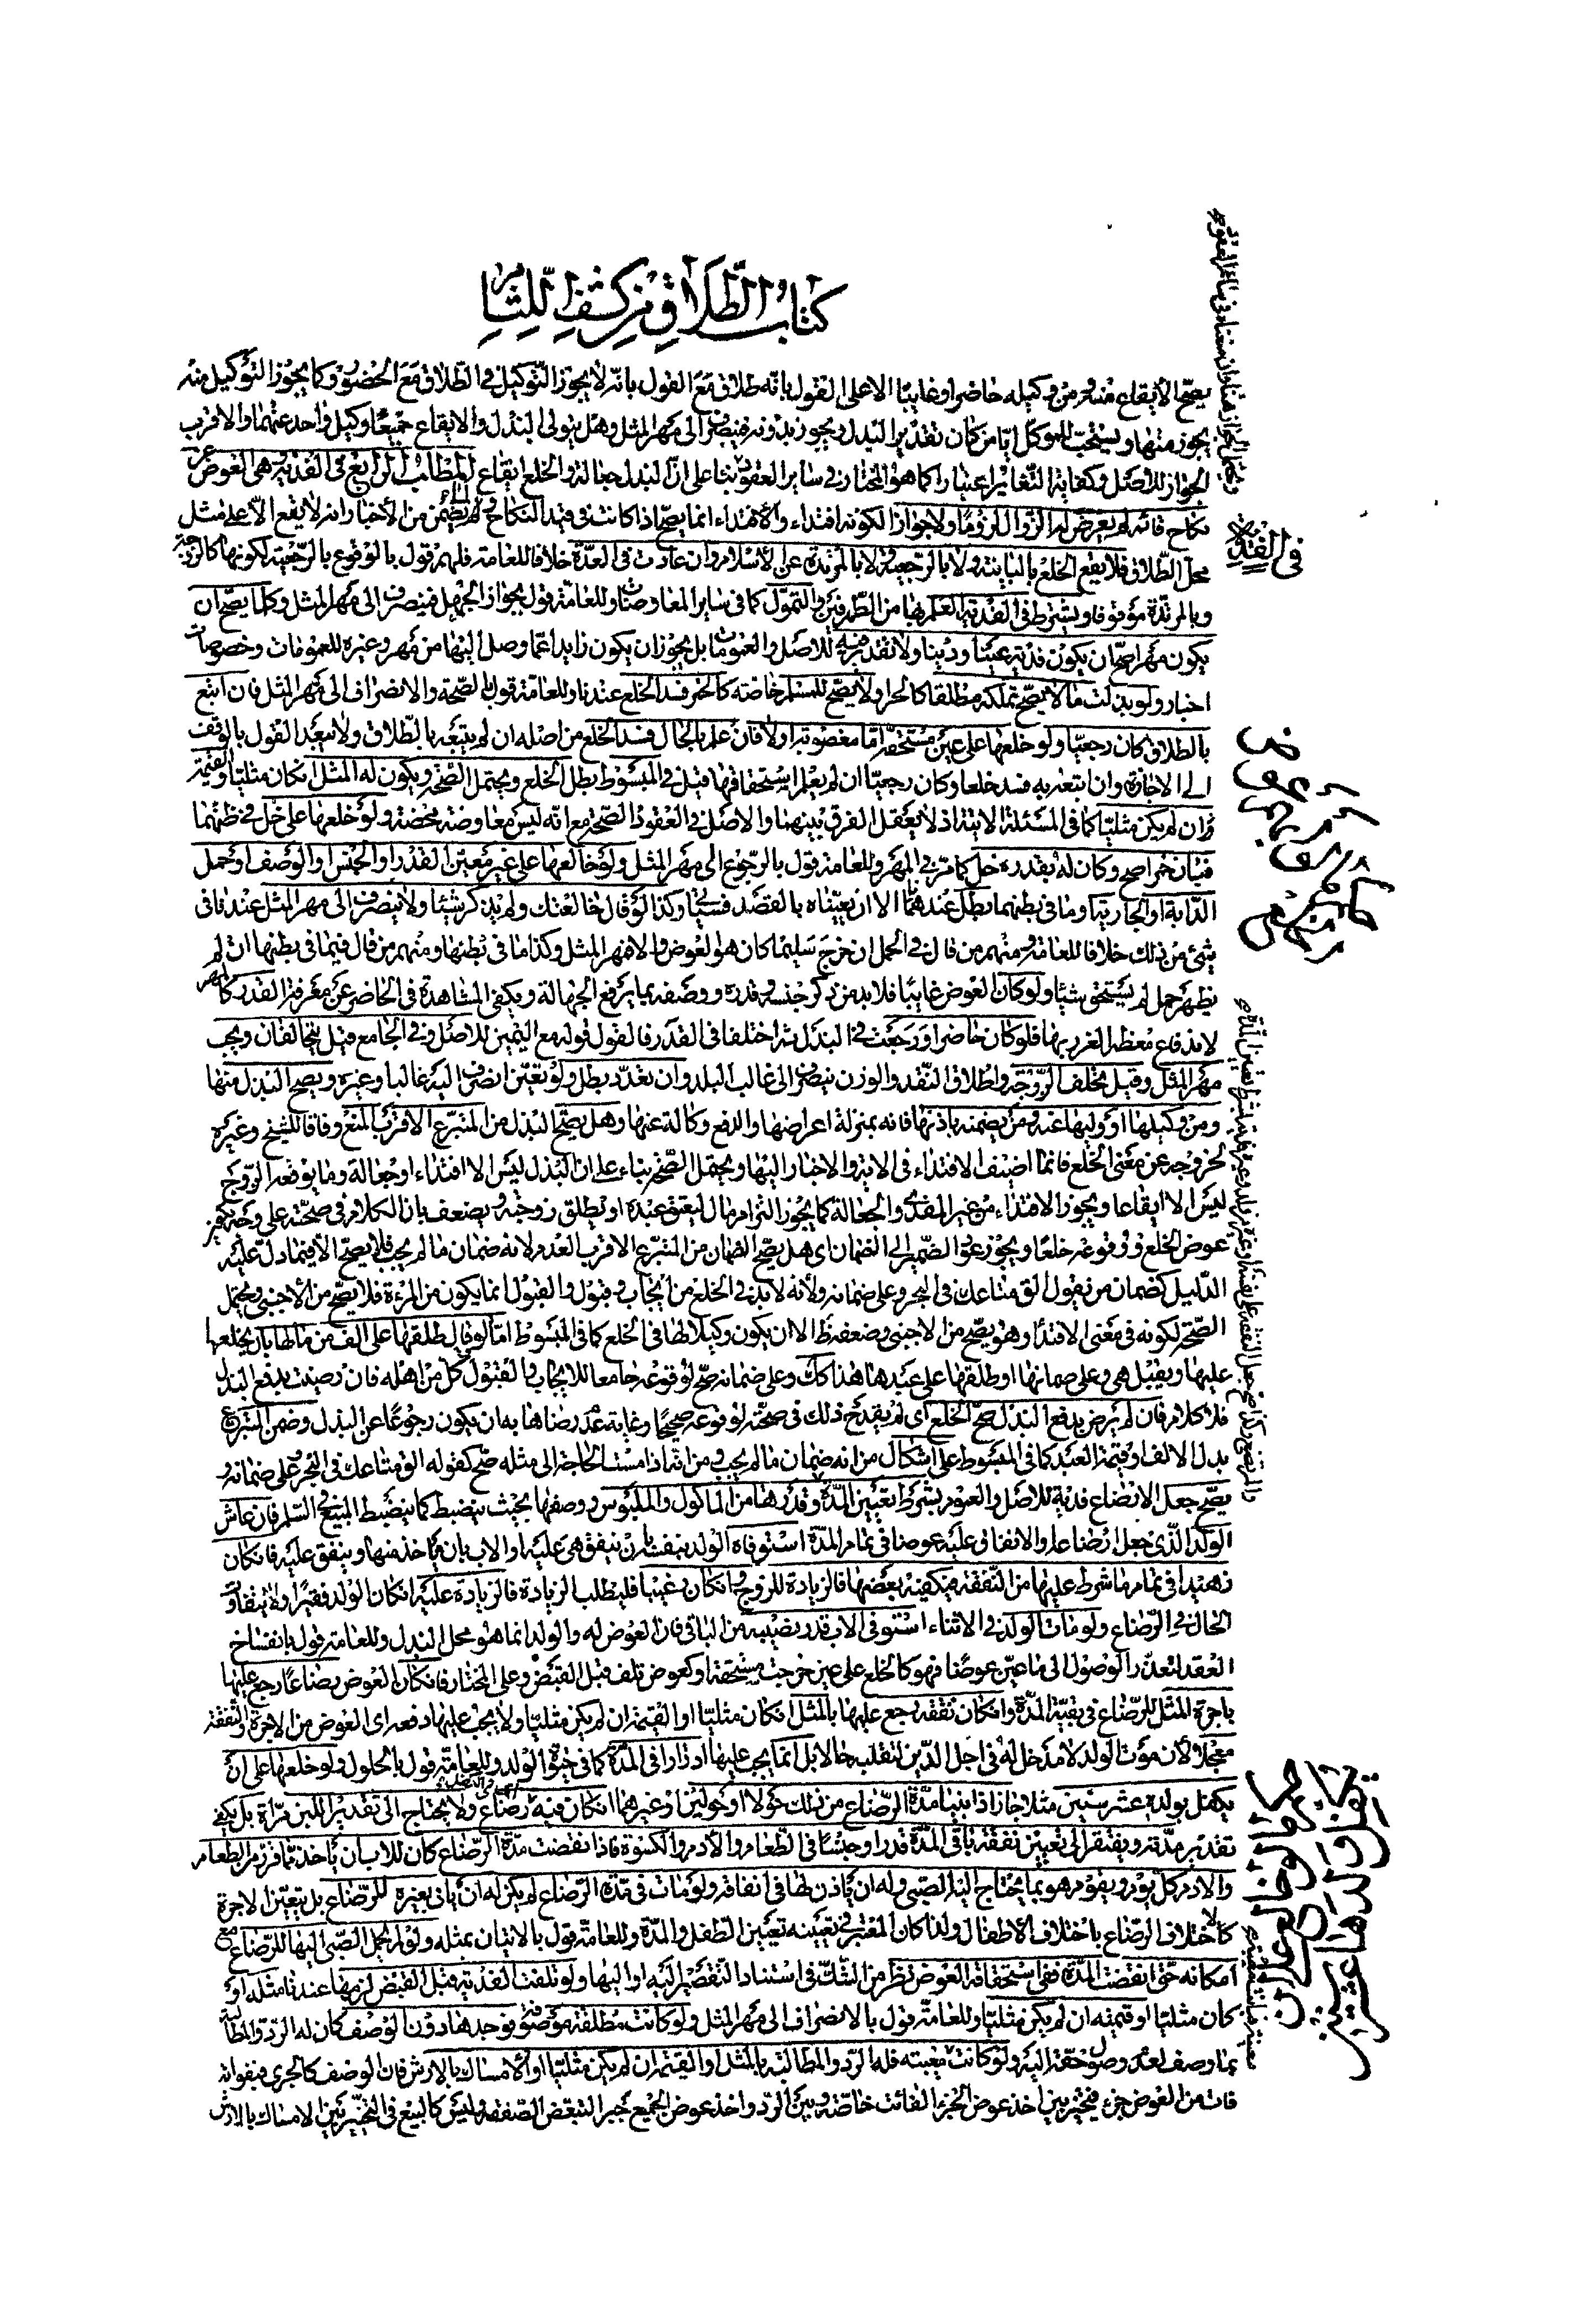 كتاب الطلاق من كشف اللثام
يصحّ الايقاع منه و من وكيله حاضرا و غايبا الا على القول بانّه طلاق مع القول بانّه لا يجوز التوكيل في الطلاق مع الحضور و كما يجوز التوكيل منه
يجوز منها و يستحبّ للموكل ايّا من كان تقدير البدل و يجوز بدونه فينصرف الى مهر المثل و هل يتولى البذل و الايقاع جميعا وكيل واحد عنهما و الاقرب
الجواز للاصل و كفاية التغاير اعتبارا كما هو المختار في ساير العقود بناء على انّ البذل جعالة و الخلع ايقاع المطلب الرابع في الفدية و هي العوض عن
نكاح قائم لم يعرض له الزوال لزوما و لا جوازا لكونه افتداء و الافتداء انما يصحّ اذا كانت في قيد النكاح و لم يضمن من الاخبار انه لا يقع الّا على مثل
محل الطلاق فلا يقع الخلع بالباينة و لا بالرجعية و لا بالمرتدة عن الاسلام و ان عادت في العدّة خلافا للعامة فلهم قول بالوقوع بالرجعية لكونها كالزوجة
و بالمرتدّة موقوفا و يشترط في الفدية العلم بها من الطرفين و التمول كما في ساير المعاوضات و للعامّة قول بجواز الجهل فينصرف الى مهر المثل و كلما يصح ان
يكون مهرا صحّ ان يكون فدية عينا و دينا و لا تقدير فيه للاصل و العمومات بل يجوز ان يكون زايدا عمّا وصل اليها من مهر و غيره للعمومات و خصوصات
اخبار و لو بذلت ما لا يصحّ تملكه مطلقا كالحر او لا يصحّ للمسلم خاصّة كالخمر فسد الخلع عندنا و للعامة قول بالصّحة و الانصراف الى مهر المثل فان اتبع
بالطلاق كان رجعيّا و لو خلعها على عين مستحقّة امّا مغصوبة او لا فان علم بالحال فسد الخلع من اصله ان لم يتبعه بالطلاق و لا يبعد القول بالوقف
الى الاجازة و ان اتبعه به فسد خلعا و كان رجعيّا ان لم يعلم استحقاقها قيل في المبسوط بطل الخلع و يحتمل الصّحة و يكون له المثل ان كان مثليّا و القيمة
و ان لم يكن مثليّا كما في المسئلة الاتية اذ لا يعقل الفرق بينهما و الاصل في العقود الصّحة مع انّه ليس معاوضة محضة و لو خلعها على خل في ظنهما
فبان خمرا صح و كان له بقدره خل كما مرّ في المهر و للعامة قول بالرجوع الى مهر المثل و لو خالعها على غير معيّن القدر او الجنس او الوصف او حمل
الدابة او الجارية او ما في بطنهما بطل عندهما الا ان يعيّناه بالقصد فسيأتي و كذا لو قال خالعتك و لم يذكر شيئا و لا ينصرف الى مهر المثل عندنا في
شيء من ذلك خلافا للعامة و منهم من قال في الحمل ان خرج سليما كان هو العوض و الا فمهر المثل و كذا ما في بطنها و منهم من قال فيما في بطنها ان لم
يظهر حمل لم يستحق شيئا و لو كان العوض غايبا فلا بد من ذكر جنسه و قدره و وصفه بما يرفع الجهالة و يكفي المشاهدة في الحاضر عن معرفة القدر كالمهر
لاندفاع معظم الغرر بها فلو كان حاضرا و رجعت في البذل ثم اختلفا في القدر فالقول قوله مع اليمين للاصل و في الجامع قيل يتحالفان و يجب
مهر المثل و قيل يحلف الزوجة و اطلاق النقد و الوزن ينصرف الى غالب البلد و ان تعدّد بطل و لو تعيّن انصرف اليه غالبا و غيره و يصح البذل منها
و من وكيلها او وليها عنه و ممن يضمنه باذنها فانه بمنزلة اعراضها و الدفع وكالة عنها و هل يصحّ البذل من المتبرّع الاقرب المنع وفاقا للشيخ و غيره
لخروجه عن معنى الخلع فانما اضيف الافتداء في الاية و الاخبار اليها و يحتمل الصّحة بناء على ان البذل ليس الا افتداء او جعالة و ما يوقعه الزوج
ليس الا ايقاعا و يجوز الافتداء من غير المفدى و الجعالة كما يجوز التزام مال ليعتق عبده او يطلق زوجته و يضعف بان الكلام في صحّته على وجه يكون
عوض الخلع و في وقوعه خلعا و يجوز عود الضّمير الى الضمان اى هل يصحّ الضمان من المتبرّع الاقرب العدم لانه ضمان ما لم يجب فلا يصحّ الا فيما دلّ عليه
الدّليل كضمان من يقول الق متاعك في البحر و على ضمانه و لأنه لا بد في الخلع من ايجاب و قبول و القبول انما يكون من المرءة فلا يصحّ من الأجنبي و يحتمل
الصّحة لكونه في معنى الافتدا و هو يصحّ من الاجنبي و ضعفه ظ الا ان يكون وكيلا لها في الخلع كما في المبسوط امّا لو قال طلقها على الف من مالها بان يخلعها
عليها و يقبل هي و على ضمانها او طلّقها على عبدها هذا كك و على ضمانه صحّ لوقوعه جامعا للايجاب و القبول كل من اهله فان رضيت بدفع البذل
فلا كلام فان لم يرض بدفع البذل صحّ الخلع اى لم يقدح ذلك في صحّته لوقوعه صحيحا و غاية عدم رضاها به ان يكون رجوعا عن البذل و ضمن المتبرّع
بدل الالف او قيمة العبد كما في المبسوط على اشكال من انه ضمان ما لم يجب و من انه اذا مست الحاجة الى مثله صحّ كقوله الق متاعك في البحر و على ضمانه و
يصّح جعل الارضاع فدية للاصل و العموم بشرط تعيين المدّة و قدرها من الماكول و الملبوس و وصفها بحيث ينضبط كما ينضبط المبيع في السّلم فان عاش
الولد الذي جعل ارضاعه او الانفاق عليه عوضا في تمام المدّة استوفاه الولد بنفسه بان ينفق هي عليه او الاب بان ياخذ منها و ينفق عليه فان كان
زهيدا في تمام ما شرط عليها من النّفقة فيكفيه بعضها فالزيادة للزوج و ان كان رغيبا فليطلب الزيادة فالزيادة عليه ان كان الولد فقيرا و لا يتفاوت
الحال في الرّضاع و لو مات الولد في الاثناء استوفى الاب قدر نصيبه من الباقي فان العوض له و الولد انما هو محل البدل و للعامة قول بانفساخ
العقد لتعذّر الوصول الى ما عيّن عوضا فهو كالخلع على عين خرجت مستحقة او كعوض تلف قبل القبض و على المختار فان كان العوض رضاعا رجع عليها
باجرة المثل للرضاع في بقيّة المدّة و ان كان نفقة رجع عليها بالمثل ان كان مثليّا او القيمة ان لم يكن مثليّا و لا يجب عليها دفعه اى العوض من الاجرة و النفقة
معجلا لأن موت الولد لا مدخل له في اجل الدّين لتقلبه حالا بل انما يجب عليها ادرارا في المدّة كما في حيوة الولد و للعامّة قول بالحلول و لو خلعها على ان
يكفل بولده عشر سنين مثلا جاز اذا بينا مدّة الرّضاع من ذلك حولا او حولين او غيرهما ان كان فيه رضاع و لا يحتاج الى تقدير اللبن مرّة بل يكفي
تقدير مدّته و يفتقر الى تعيين نفقة باقي المدّة قدرا و جنسا في الطّعام و الأدم و الكسوة فاذا انقضت مدّة الرضاع كان للاب ان ياخذ ما قرر من الطعام
و الادم كل يوم و يقوم هو بما يحتاج اليه الصّبي و له ان ياذن لها في انفاقه و لو مات في مدّة الرّضاع لم يكن له ان ياتي بغيره للرّضاع بل يتعيّن الاجرة
لاختلاف الرّضاع باختلاف الأطفال و لذا كان المعتبر في تعيينه تعيين الطفل و المدّة و للعامّة قول بالاتيان بمثله و لو لم يحمل الصّبي اليها للرّضاع مع
امكانه حتى انقضت المدّة ففي استحقاقه العوض نظر من الشكّ في استناد التقصير اليه او اليها و لو تلفت الفدية قبل القبض لزمها عندنا مثله او
كان مثليّا او قيمته ان لم يكن مثليّا و للعامّة قول بالانصراف الى مهر المثل و لو كانت مطلقة موصوفة فوجدها دون الوصف كان له الردّ و المطالبة
بما وصف لعدم وصول حقّه اليه و لو كانت معيبة فله الردّ و المطالبة بالمثل او القيمة ان لم يكن مثليّا او الامساك بالارش فان الوصف كالجزء فبفواته
فات من العوض جزء فيتخيّر بين اخذ عوض الجزء الفائت خاصّة و بين الردّ و اخذ عوض الجميع جبرا لتبعّض الصّفقة و ليس كالبيع في التخيير بين الامساك بالارش
في الفدية